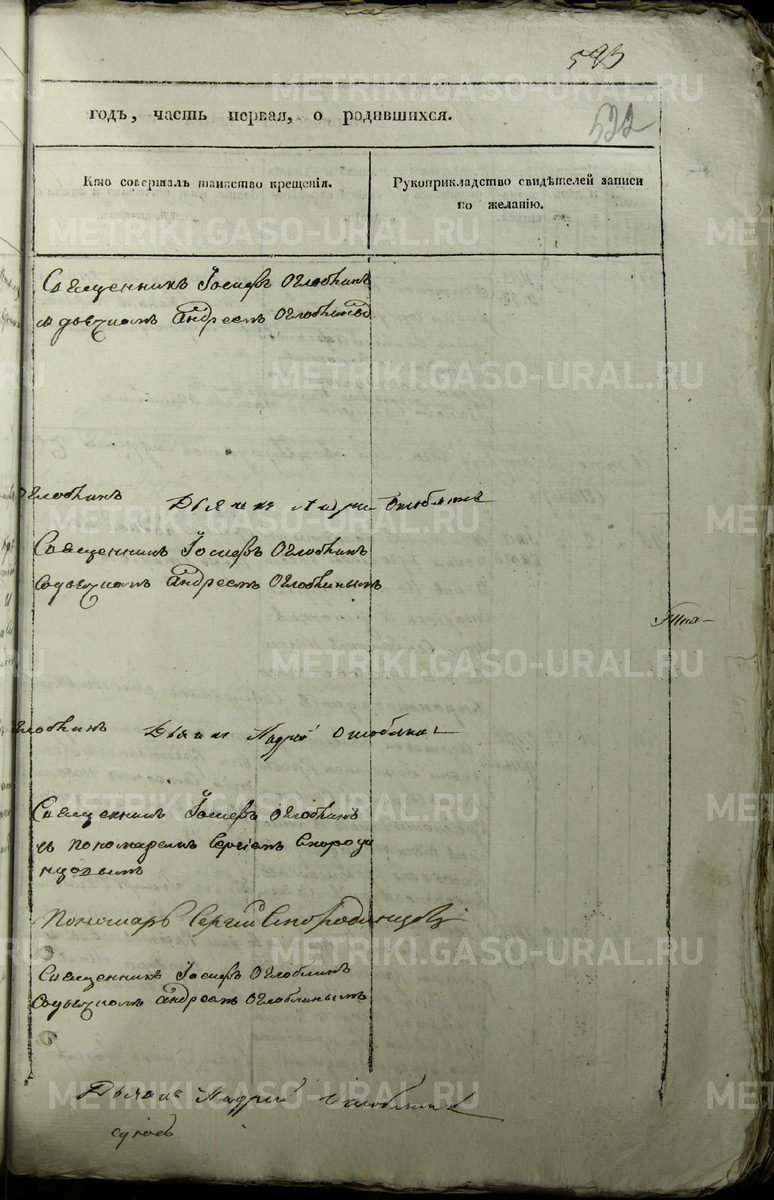 593
522
годъ, часть первая, о родившихся.
Кто совершалъ таинство крещенія.
Рукоприкладство свидѣтелей записи по желанію.
Священникъ Іосифъ Оглоблинъ
съ дьячкомъ Андреемъ Оглоблинымъ
Оглоблинъ
Дьячекъ Андрей Оглоблинъ
Священникъ Іосифъ Оглоблинъ
съ дьячкомъ Андреемъ Оглоблинымъ
Оглоблинъ
Дьячекъ Андрей Оглоблинъ
Священникъ Іосифъ Оглоблинъ
съ пономаремъ Сергіемъ Скороди
нцовымъ
Пономарь Сергій Скородинцовъ
Священникъ Іосифъ Оглоблинъ
съ дьячкомъ Андреемъ Оглоблинымъ
Дьячекъ Андрей Оглоблинъ
METRIKI.GASO-URAL.RU